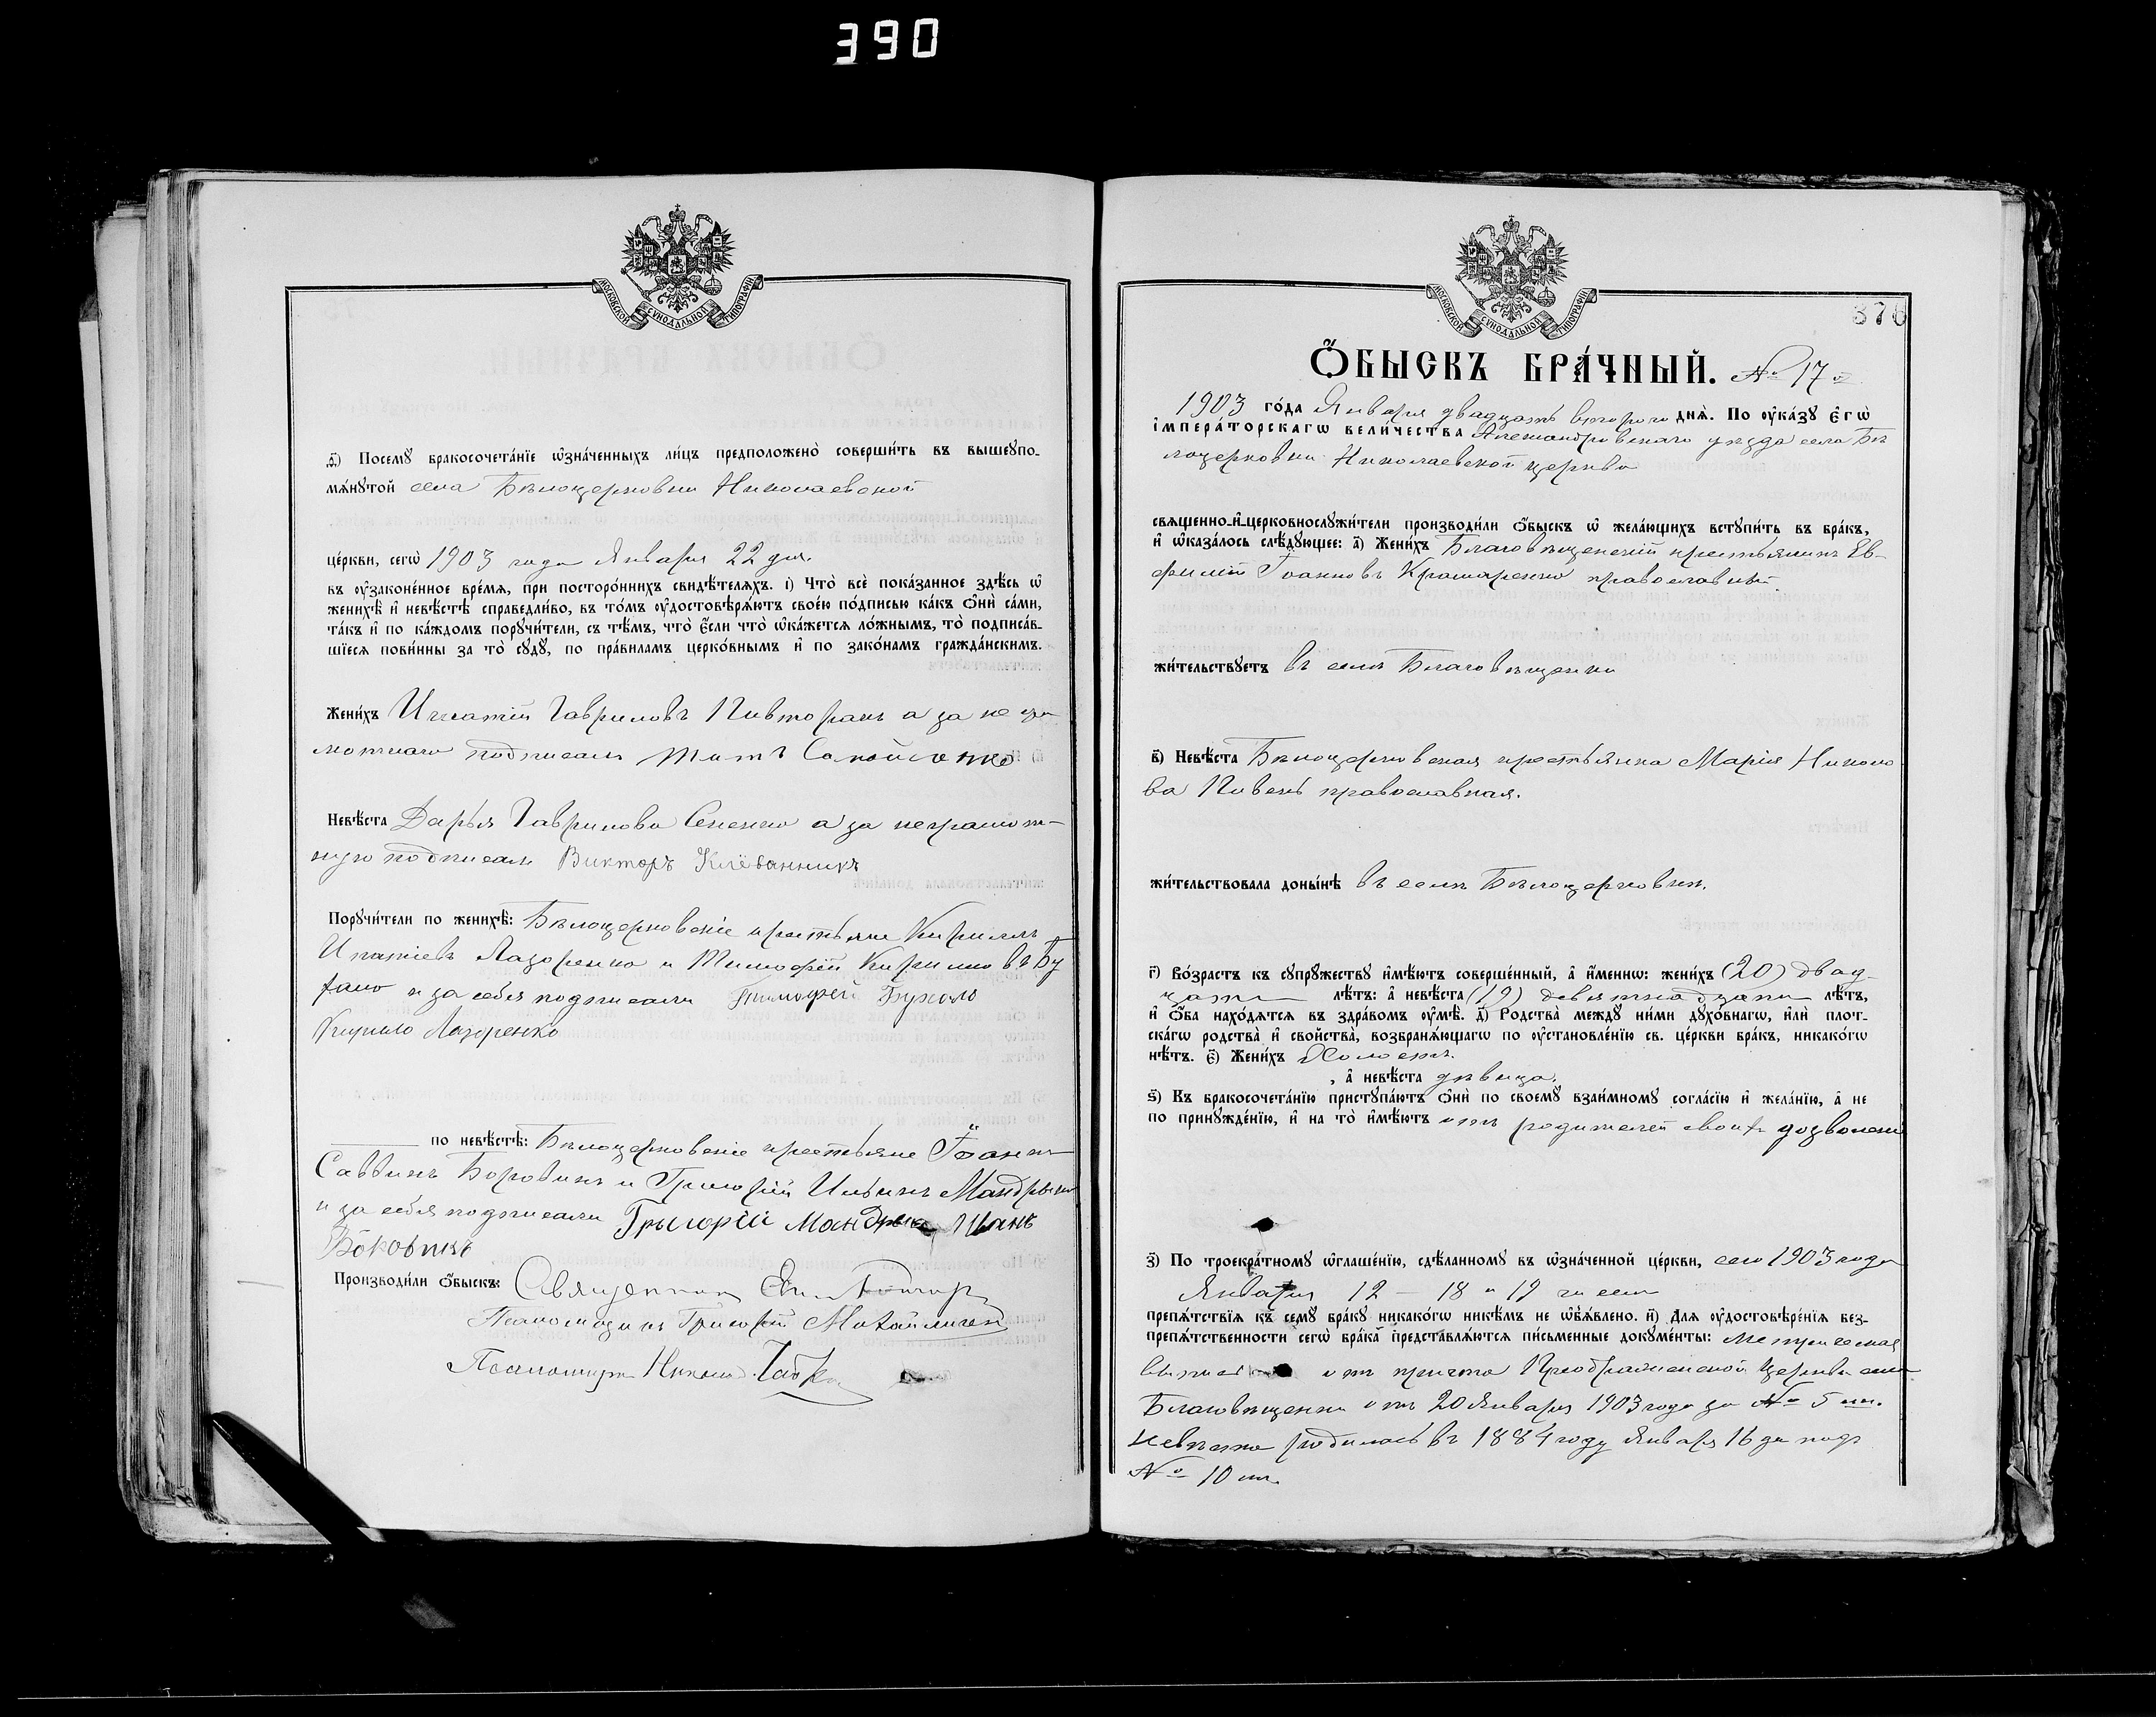 390
МОСКОВСКОЙ СѴНОДАЛЬНОЙ ТИПОГРАФІИ
ѳ҃) Посемꙋ бракосочета́нїе ѡ҆зна́ченныхъ ли́цъ предположено̀ соверши́ть въ вышеꙋпо-
мѧ́нꙋтой села Бѣлоцерковки Николаевской
це́ркви, сегѡ̀ 1903 года Января 22 дня.
въ ᲂу҆зако́не́нное вре́мѧ, при посторо́ннихъ свидѣ́телѧхъ. і҃) Что̀ всѐ пока́занное здѣ́сь ѡ҆
женихѣ̀ и҆ невѣ́стѣ справедли́во, въ то́мъ ᲂу҆достовѣрѧ́ютъ свое́ю по́дписью ка́къ ѻ҆нѝ са́ми,
та́къ и҆ по ка́ждомъ порꙋчи́тели, съ тѣ́мъ, что̀ є҆́сли что̀ ѡ҆ка́жетсѧ ло́жнымъ, то̀ подписа́в-
шїесѧ пови́нны за то̀ сꙋдꙋ̀, по пра́виламъ церко́внымъ и҆ по зако́намъ гражда́нскимъ.
Жени́хъ Игнатій Гавриловъ Пивторакъ а за негра
мотнаго подписалъ Титъ Самойленко
Невѣ́ста Дарья Гаврилова Сененко а за неграмот-
ную подписалъ Викторъ Клёванникъ
Порꙋчи́тели по женихѣ̀: Бѣлоцерковскіе крестьяне Кириллъ
Игнатіевъ Лазоренко и Тимофей Кириловъ Бу
хало и за себя подписали Тимофей Бухало
Кирило Лазоренко
по невѣ́стѣ: Бѣлоцерковскіе крестьяне Іоаннъ
Саввинъ Боровикъ и Григорій Ильинъ Мандрыка
и за себя подписали Грыгорій Мандрыка Иванъ
Боковикъ
Производи́ли ѻ҆́быскъ: Священникъ
Псаломщикъ Григорій Михайличен
Псаломщикъ
МОСКОВСКОЙ СѴНОДАЛЬНОЙ ТИПОГРАФІИ
376
Ѻ҆́БЫСКЪ БРА́ЧНЫЙ. № 17й
1903 го́да Января двадцать второго днѧ̀. По ᲂу҆ка́зꙋ є҆гѡ̀
і҆мпера́торскагѡ вели́чества Александровскаго уѣзда села Бѣ
лоцерковки Николаевской церкви
свѧще́нно-и҆-церковнослꙋжи́тели производи́ли ѻ҆́быскъ ѡ҆ жела́ющихъ встꙋпи́ть въ бра́къ,
и҆ ѡ҆каза́лось слѣ́дꙋющее: а҃) Жени́хъ Благовѣщенскій крестьянинъ Ев-
фимій Іоанновъ Крамаренко православный
жи́тельствꙋетъ въ селѣ Благовѣщенки
в҃) Невѣ́ста Бѣлоцерковская крестьянка Марія Николо
ва Пивень православная.
жи́тельствовала доны́нѣ въ селѣ Бѣлоцерковки.
г҃) Во́зрастъ къ сꙋпрꙋ́жествꙋ и҆мѣ́ютъ соверше́нный, а҆ и҆́менно: жени́хъ (20) двад-
цати лѣ́тъ: а҆ невѣ́ста (19) девятнадцати лѣ́тъ,
и҆ ѻ҆́ба нахо́дѧтсѧ въ здра́вомъ ᲂу҆мѣ̀. д҃) Родства̀ междꙋ̀ ни́ми дꙋхо́внагѡ, и҆лѝ плот-
ска́гѡ родства̀ и҆ сво́йства, возбранѧ́ющагѡ по ᲂу҆становле́нїю св. це́ркви бра́къ, никако́гѡ
нѣ́тъ. є҃) Жени́хъ Холостъ.
, а҆ невѣ́ста дѣвица.
ѕ҃) Къ бракосочета́нїю пристꙋпа́ютъ ѻ҆нѝ по своемꙋ̀ взаи́мномꙋ согла́сїю и҆ жела́нїю, а҆ не
по принꙋжде́нїю, и҆ на то̀ и҆мѣ́ютъ отъ родителей своихъ дозволені
з҃) По троекра́тномꙋ ѡ҆глаше́нїю, сдѣ́ланномꙋ въ ѡ҆зна́ченной це́ркви, сего 1903 года
Января 12 – 18 и 19 чиселъ
препѧ́тствїѧ къ семꙋ̀ бра́кꙋ никако́гѡ никѣ́мъ не ѡ҆б̾ѧ́влено. и҃) Длѧ ᲂу҆достовѣре́нїѧ без-
препѧ́тственности сегѡ̀ бра́ка предста́влѧютсѧ пи́сьменные докꙋме́нты: метрическая
выписъ отъ причта Преображенской церкви села
Благовѣщенки отъ 20 Января 1903 года за № 5 мъ.
невѣста родилась въ 1884 году Января 16 дн подъ
№ 10 мъ.